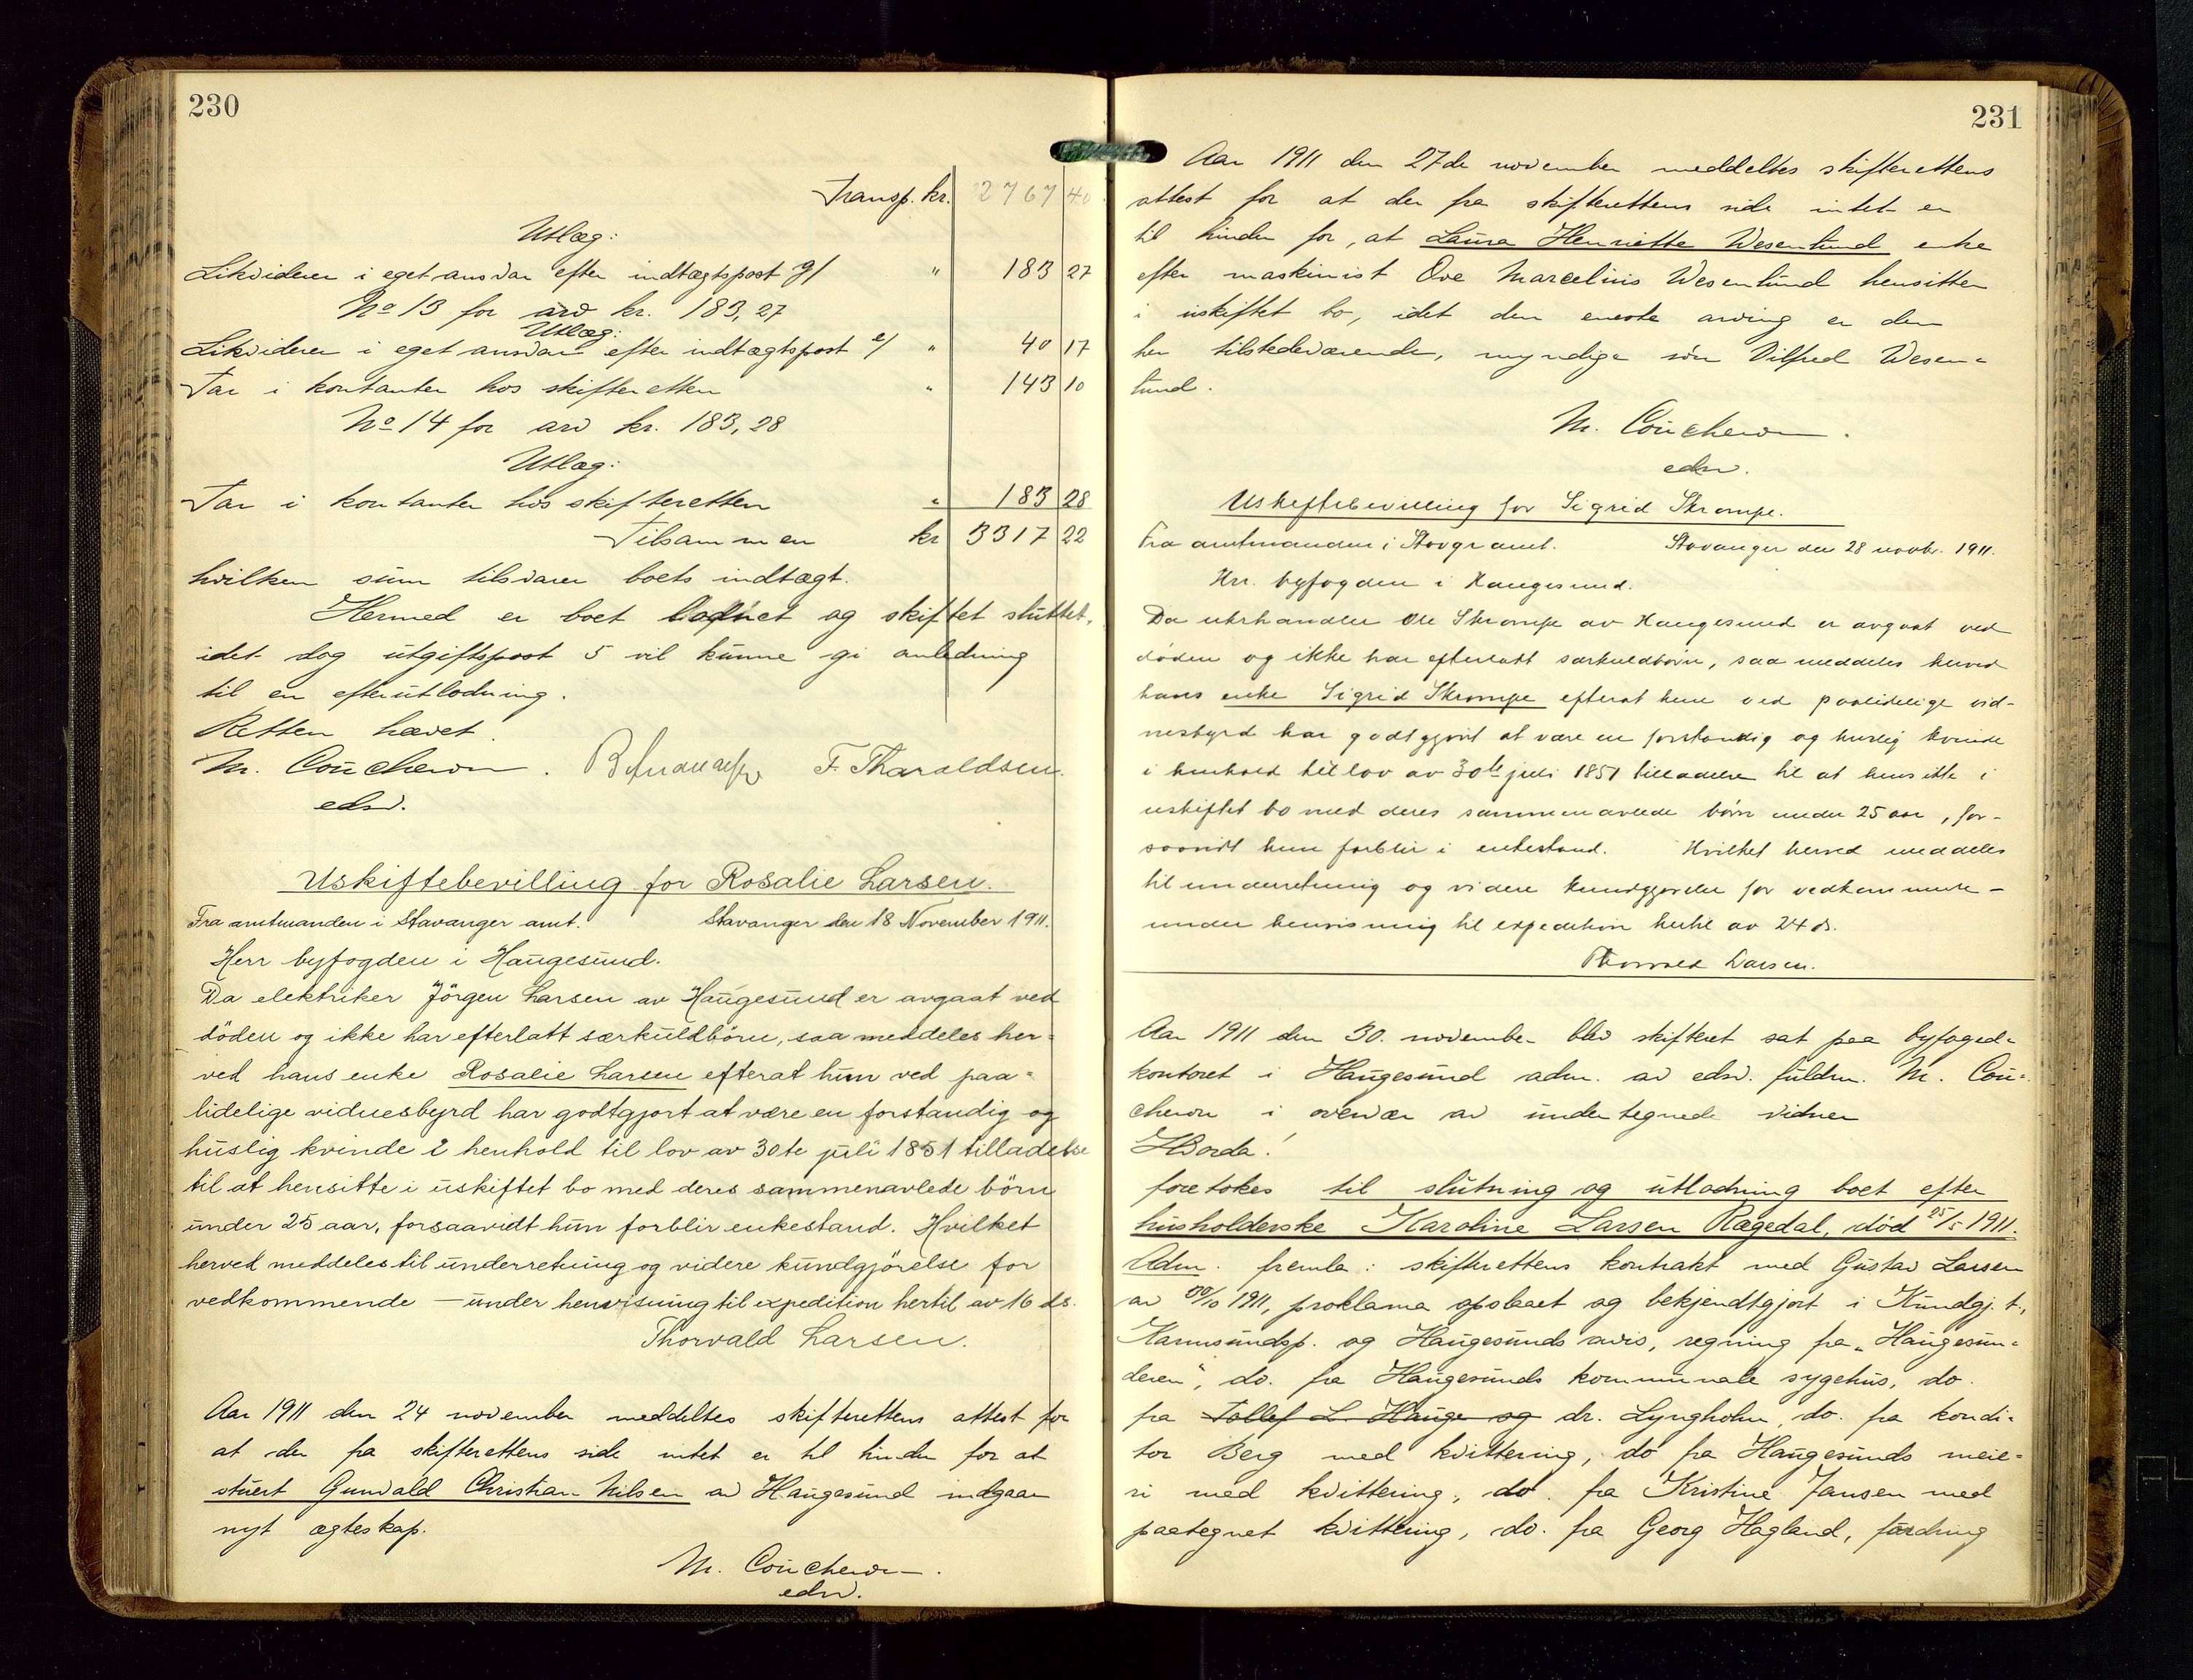 230
Transp. kr. 2767 40
Utlæg:
Likviderer i eget ansvar efter indtægtspost g/ " 183 27
No 13 for arv kr. 183,27
Utlæg:
Likviderer i eget ansvar efter indtægtspost e/ " 40 17
Tar i kontanter hos skifteretten " 143 10
No 14 for arv kr. 183,28
Utlæg:
Tar i kontanter hos skifteretten " 183 28
Tilsammen kr 3317 22
hvilken sum tilsvarer boets indtægt.
Hermed er boet lodnet og skiftet sluttet,
idet dog utgiftspost 5 vil kunne gi anledning
til en efterutlodning.
Retten hævet.
M. Coucheron. F. Tharaldsen.
edsv.
Uskiftebevilling for Rosalie Larsen.
Fra amtmanden i Stavanger amt. Stavanger den 18 November 1911.
Herr byfogden i Haugesund.
Da elektriker Jörgen Larsen av Haugesund er avgaat ved
döden og ikke har efterlatt særkuldbörn, saa meddeles her=
ved hans enke Rosalie Larsen efterat hun ved paa=
lidelige vidnesbyrd har godtgjort at være en forstandig og
huslig kvinde i henhold til lov av 30te juli 1851 tilladelse
til at hensitte i uskiftet bo med deres sammenavlede börn
under 25 aar, forsaavidt hun forblir enkestand. Hvilket
herved meddeles til underretning og videre kundgjörelse for
vedkommende – under henvisning til expedition hertil av 16 ds.
Thorvald Larsen.
Aar 1911 den 24 november meddeltes skifterettens attest for
at der fra skifterettens side intet er til hinder for at
stuert Gunvald Christian Nilsen av Haugesund indgaar
nyt ægteskap.
M. Coucheron.
edsv.
231
Aar 1911 den 27de november meddeltes skifterettens
attest for at der fra skifterettens side intet er
til hinder for, at Laura Henriette Wesenlund enke
efter maskinist Ove Marcelius Wesenlund hensitter
i uskiftet bo, idet den eneste arving er den
her tilstedeværende, myndige søn Vilfred Wesen=
lund.
M. Coucheron.
edsv.
Uskiftebevilling for Sigrid Skrompe.
Fra amtmanden i Stavgr amt. Stavanger den 28 novbr. 1911.
Hrr. byfogden i Haugesund.
Da uhrhandler Ole Skrompe av Haugesund er avgaat ved
döden og ikke har efterlatt særkuldbörn, saa meddeles herved
hans enke Sigrid Skrompe efterat hun ved paalidelige vid-
nesbyrd har godtgjort at være en forstandig og huslig kvinde
i henhold til lov av 30te juli 1851 tilladelse til at hensitte i
uskiftet bo med deres sammenavlede börn under 25 aar, for-
saavidt hun forblir i enkestand. Hvilket herved meddeles
til underretning og videre kundgjørelse for vedkommende –
under henvisning til expedition hertil av 24 ds.
Thorvald Larsen.
Aar 1911 den 30. november blev skifteret sat paa byfoged=
kontoret i Haugesund adm. av edsv. fuldm. M. Cou=
cheron i overvær av undertegnede vidner
foretokes til slutning og utlodning boet efter
husholderske Karoline Larsen Ragedal, død 25/5 1911.
Adm. fremla: skifterettens kontrakt med Gustav Larsen
av 1911, proklama opslaaet og bekjendtgjort i Kundgj. t.,
Karmsundsp. og Haugesunds avis, regning fra „Haugesun=
deren", do. fra Haugesunds kommunale sygehus, do.
fra Tollef L. Hauge og dr. Lyngholm, do. fra kondi=
tor Berg med kvittering, do fra Haugesunds meie=
ri med kvittering, do. fra Kristine Jansen med
paategnet kvittering, do. fra Georg Hagland, fordring